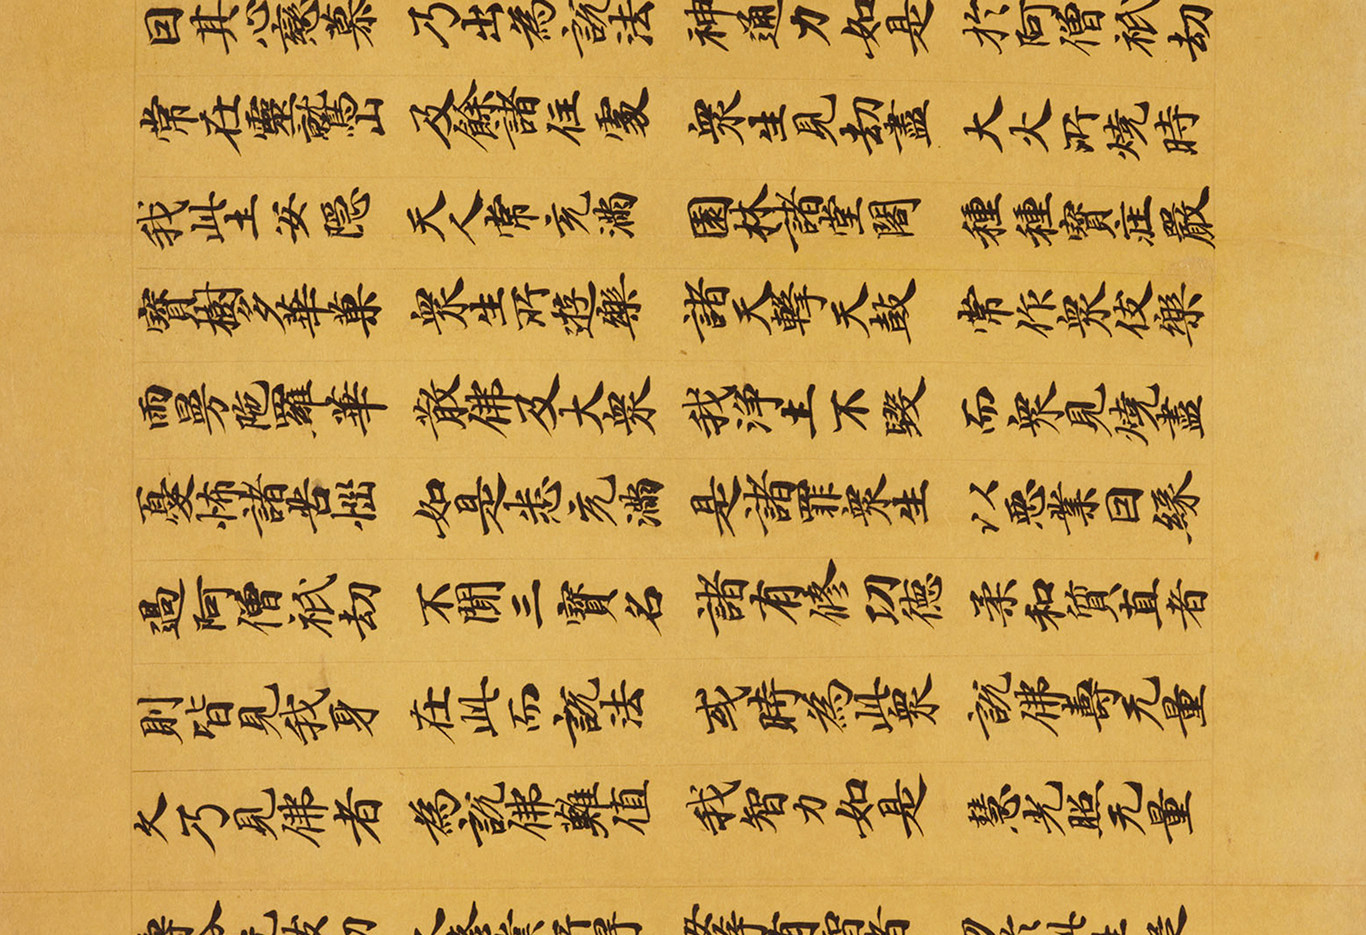 因其心戀慕 乃出為說法 神通力如是 於阿僧祇劫
常在靈鷲山 及餘諸住處 衆生見劫盡 大火所燒時
我此土安隱 天人常充滿 園林諸堂閣 種種寶莊嚴
寶樹多華菓 衆生所遊樂 諸天擊天鼓 常作衆伎樂
雨曼陁羅華 散佛及大衆 我淨土不毀 而衆見燒盡
憂怖諸苦惱 如是悉充滿 是諸罪衆生 以惡業因緣
過阿僧祇劫 不聞三寶名 諸有修功德 柔和質直者
則皆見我身 在此而說法 或時為此衆 說佛壽无量
久乃見佛者 為說佛難值 我智力如是 慧光照无量